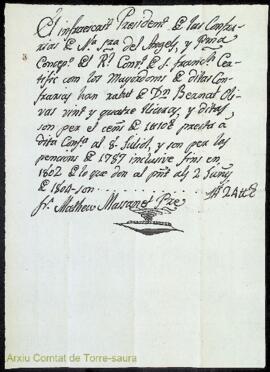 El infraescrit President de las Confra-
rias de Nra. Sra. dels Angels, y Puríssa.
Concepo. del Rl. Convt. de S. Francisco Ce-
rtific com los Mayordoms de ditas Con-
frarias han rebut de Dn. Bernat Oli-
vas vint y quatre lliuras, y ditas
son per el cens de
dita Confa. al 8. Juliol, y son per las
pencions de 1787 inclusive fins en
1802 de lo que don al pnt. als 2 Juñy
de 1804 son
Fr. Matheu Pre.
Arxiu Comtat de Torre-saura